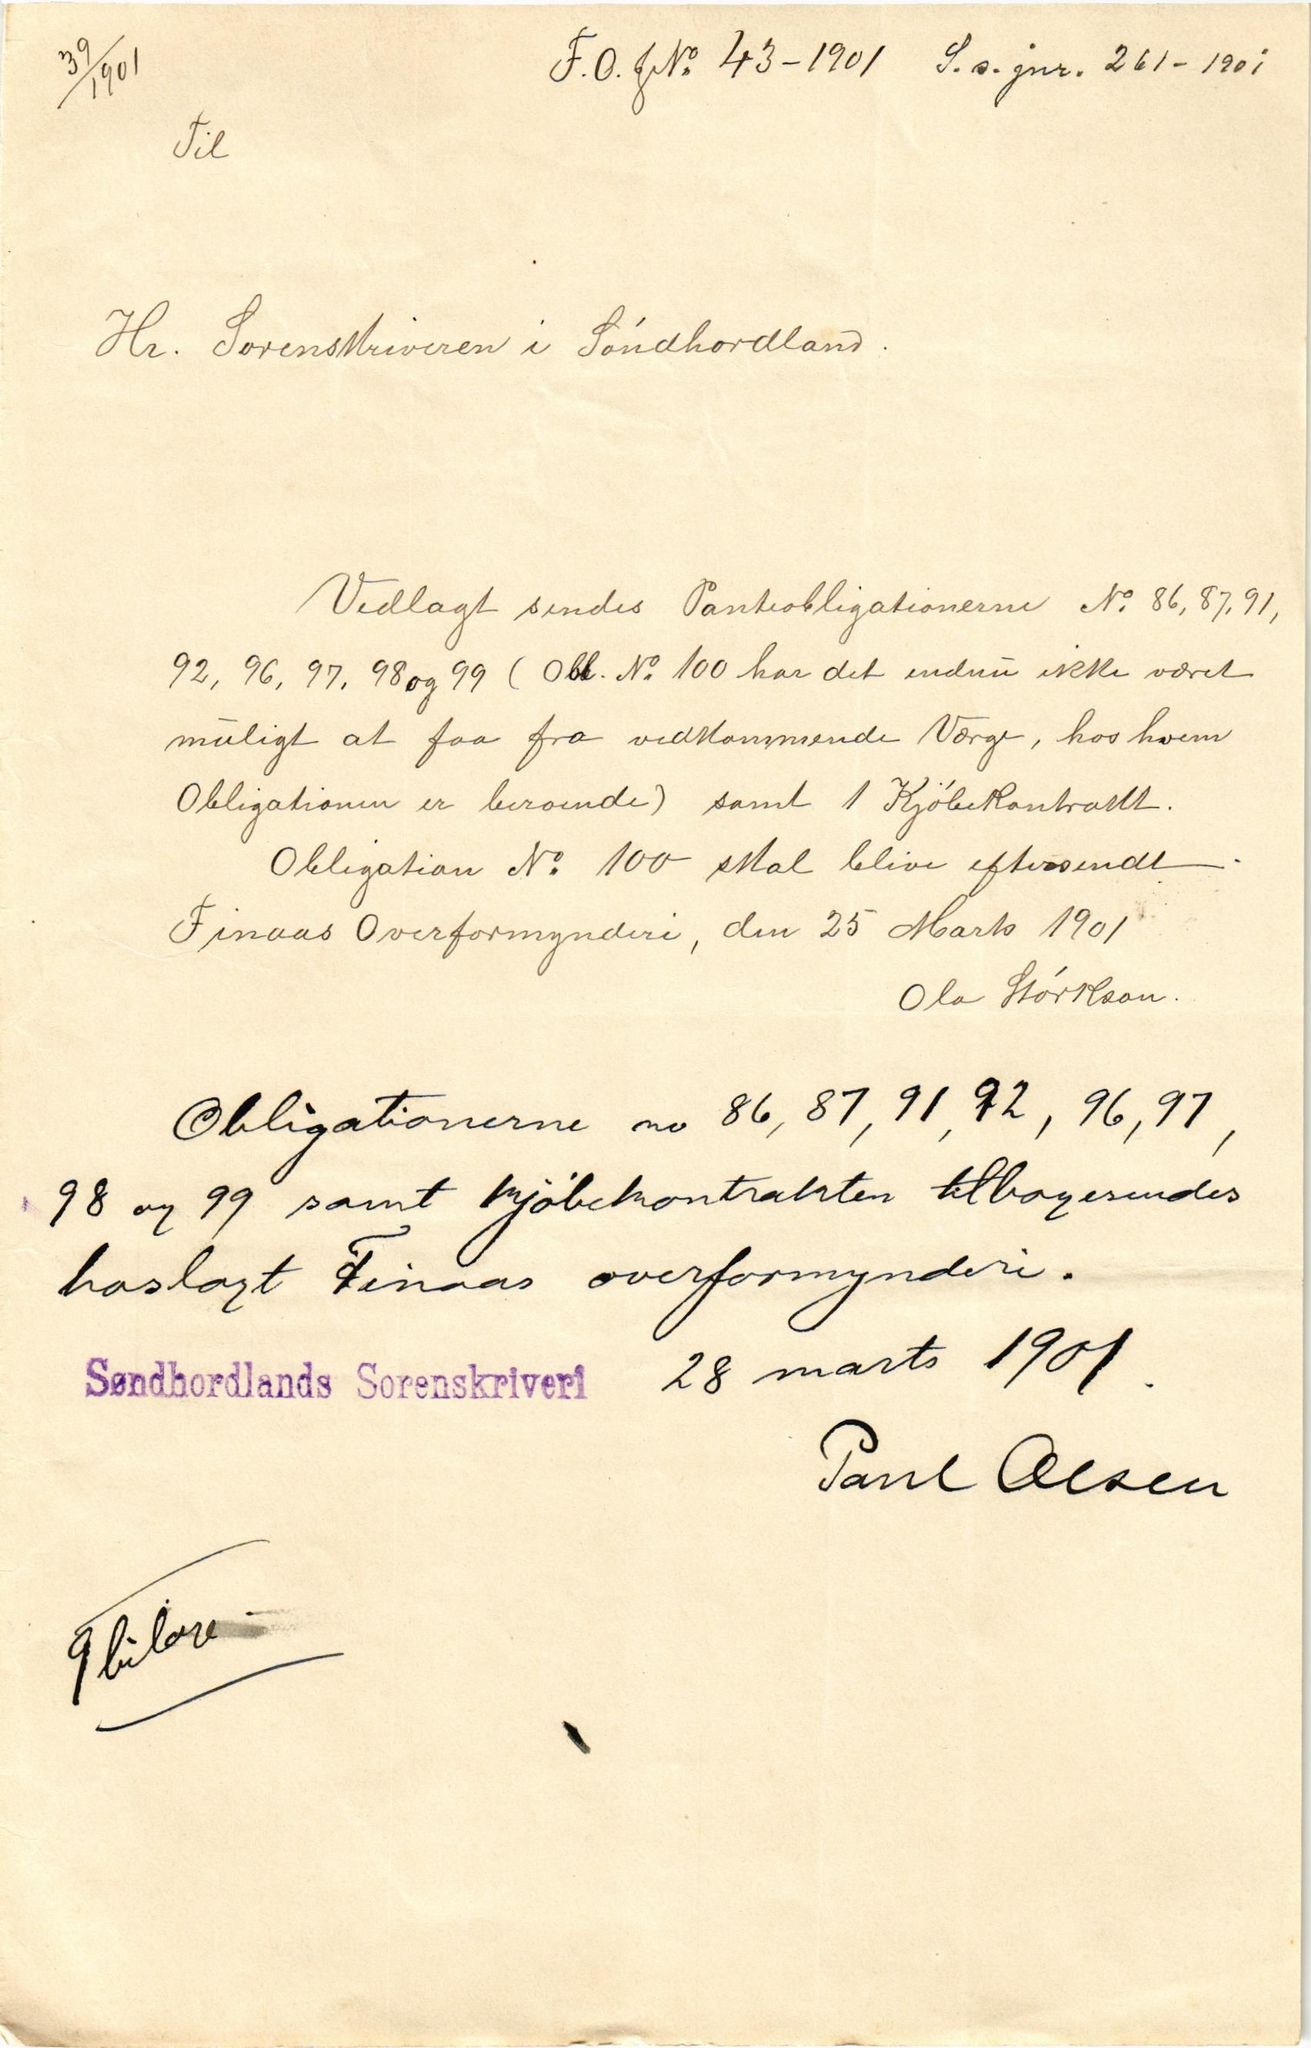 39/1901
F. O. J. No. 43-1901 S. s. jnr. 261-1901
Til
Hr. Sorenskriveren i Søndhordland.
Vedlagt sendes Panteobligationerne No. 86, 87, 91,
92, 96, 97, 98 og 99 ( Obl. No. 100 har det endnu ikke været
muligt at faa fra vedkommende Værge, hos hvem
Obligationen er beroende) samt 1 Kjöbekontrakt.
Obligation No. 100 skal blive eftersendt.
Finaas Overformynderi, den 25 Marts 1901
Ola Störkson.
Obligationerne no 86, 87, 91, 92, 96, 97,
98 og 99 samt kjöbekontrakten tilbagesendes
hoslagt Finaas overformynderi.
Søndhordlands Sorenskriveri 28 marts 1901.
Paul Olsen
9 bilag